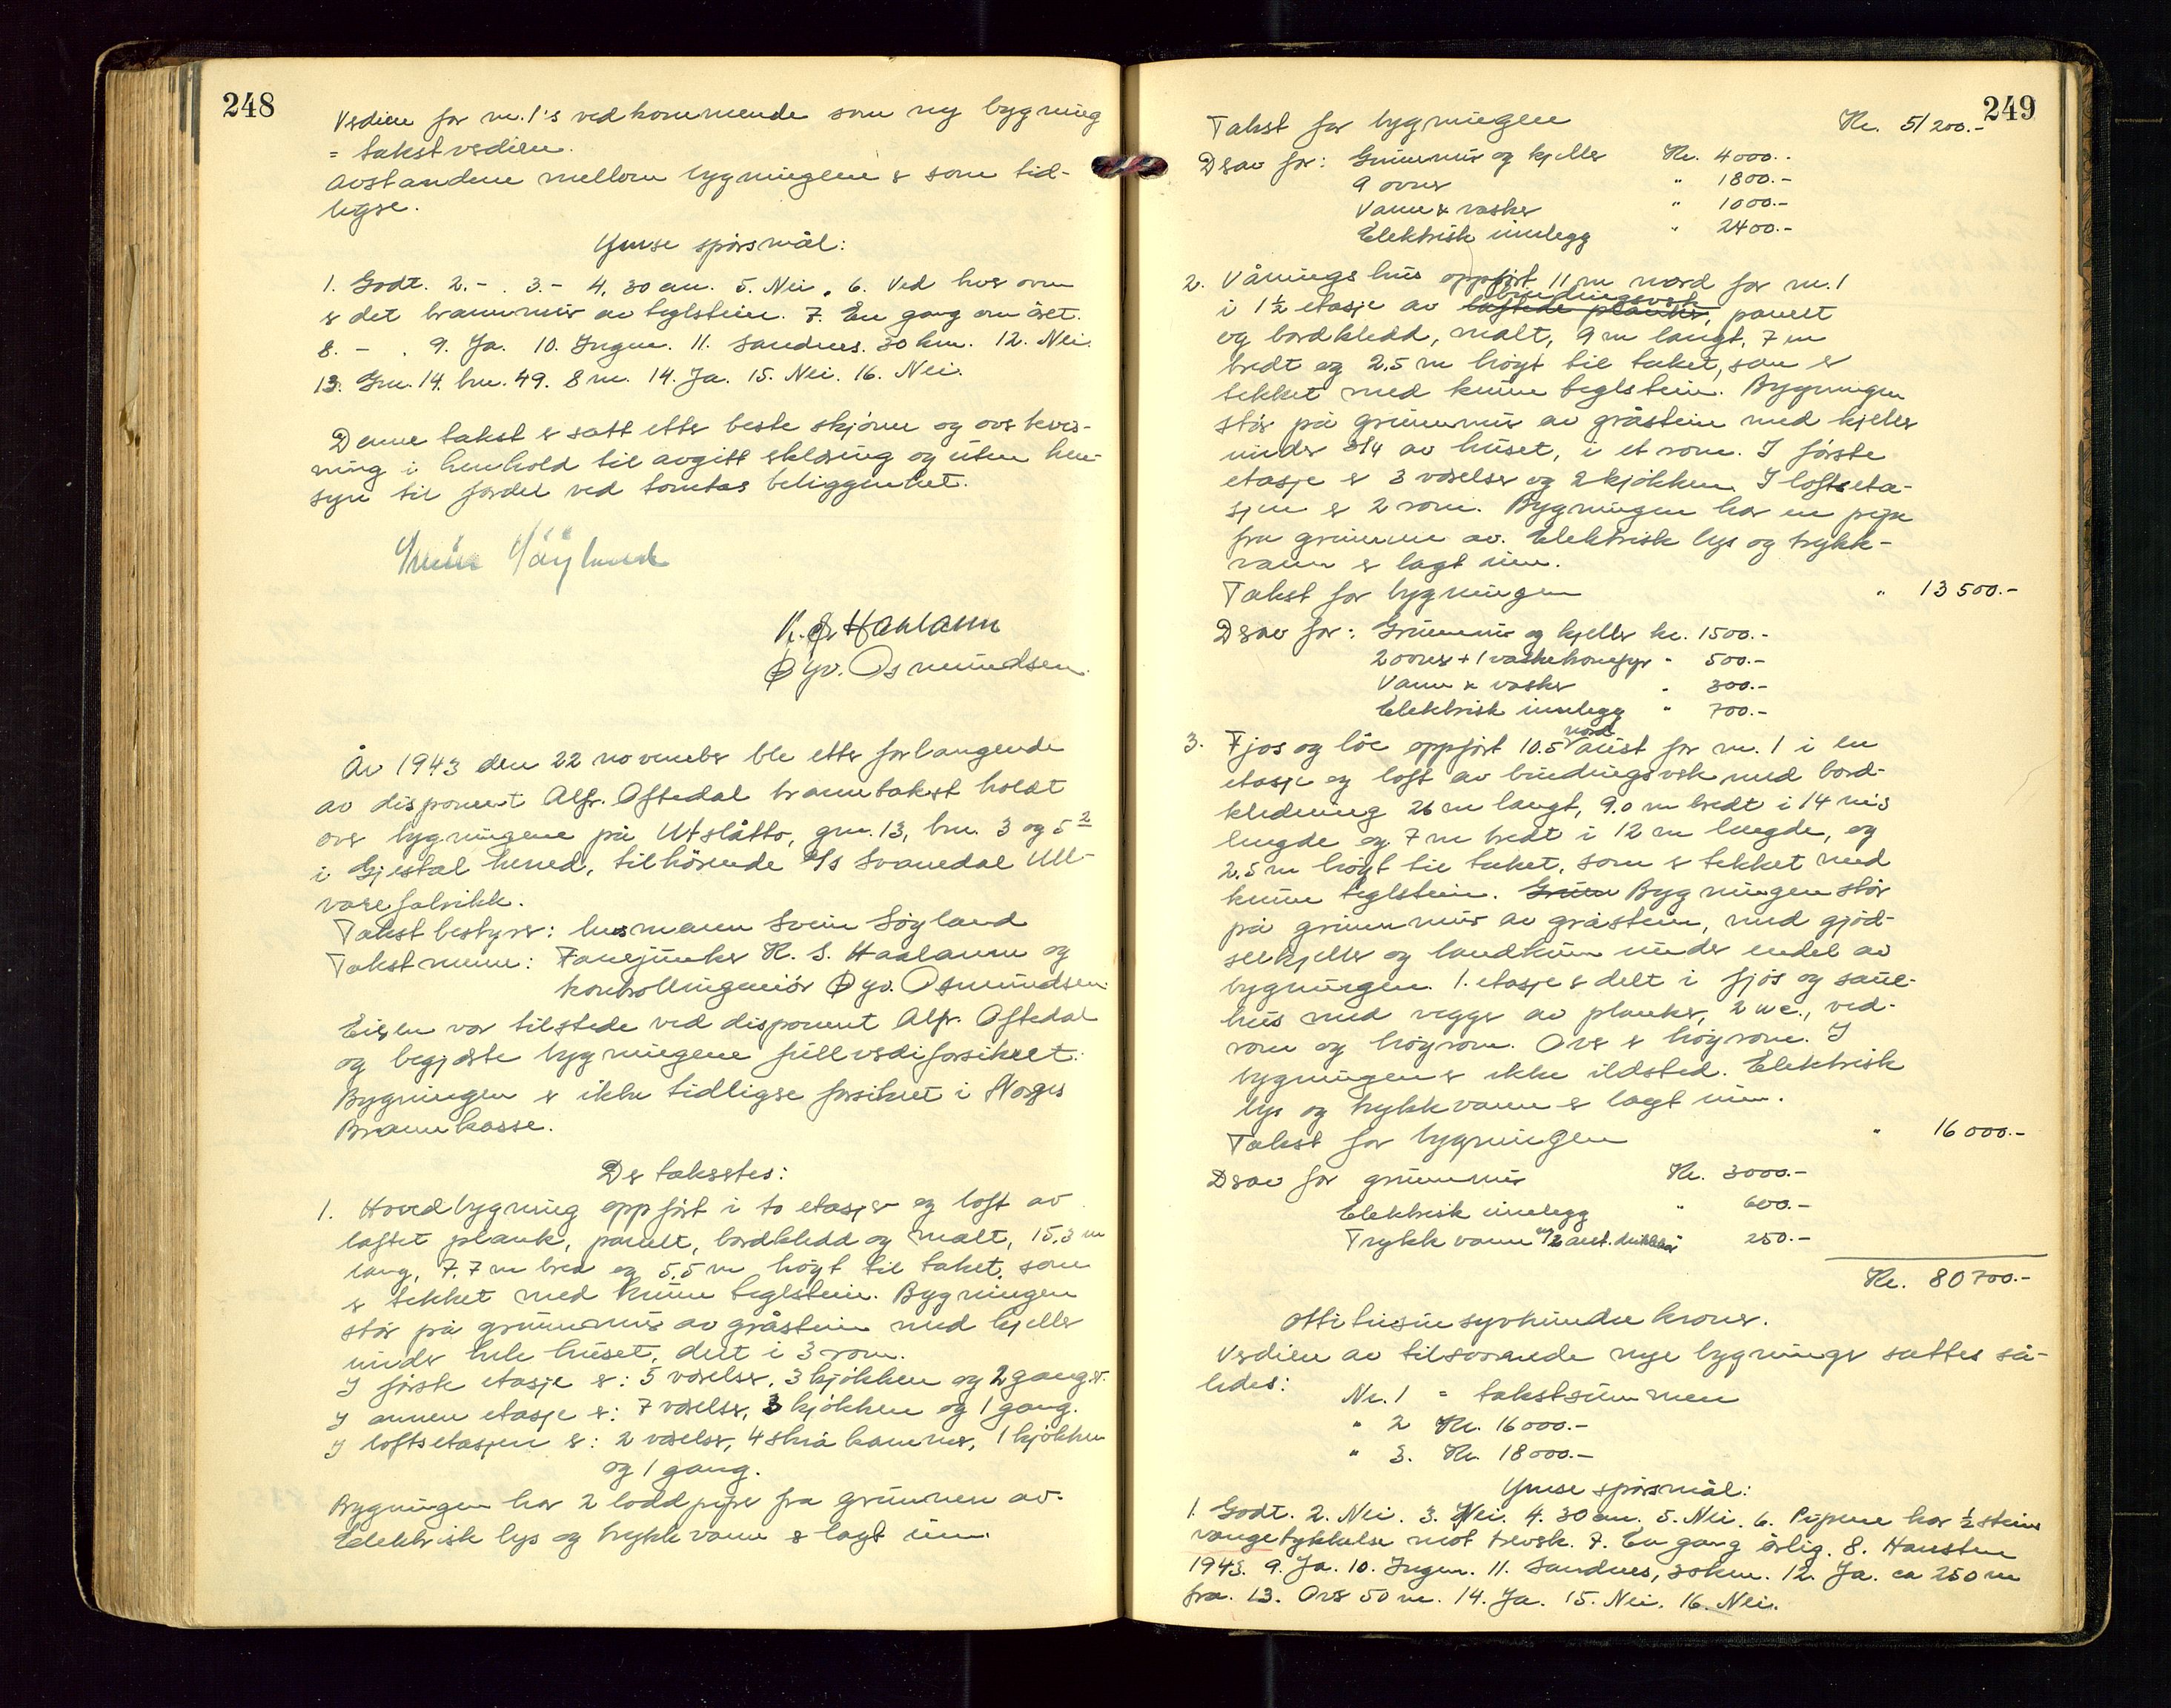 248
Verdien for nr. 1's vedkommende som ny bygning
= takstverdien.
Avstandene mellom bygningene er som tid-
ligere.
Ymse spörsmål:
1. Godt. 2. - . 3. - 4. 30 cm. 5. Nei. 6. Ved hver ovn
er det brannmur av teglstein. 7. En gang om året.
8. - . 9. Ja. 10. Ingen. 11. Sandnes. 30 km. 12. Nei.
13. Gnr. 14. bnr. 49. 8 m. 14. Ja. 15. Nei. 16. Nei.
Denne takst er satt etter beste skjönn og overbevis-
ning i henhold til avgitt erklæring og uten hen-
syn til fordel ved tomtas beliggenhet.
Svein Söyland
K. S. Haaland
Öyv. Osmundsen.
År 1943 den 22 november ble etter forlangende
av disponent Alfr. Oftedal branntakst holdt
over bygningene på Utslåtto, gnr. 13, bnr. 3 og 5²
i Gjestal herred, tilhörende A/S Svanedal Ull-
varefabrikk.
Takstbestyrer: lensmann Svein Söyland
Takstmenn: Fanejunker K. S. Haaland og
kontrollingeniör Öyv. Osmundsen.
Eieren var tilstede ved disponent Alfr. Oftedal
og begjærte bygningene fullverdiforsikret.
Bygningen er ikke tidligere forsikret i Norges
Brannkasse.
De taksertes:
1. Hovedbygning oppfört i to etasjer og loft av
laftet plank, panelt, bordkledd og malt, 15.3 m
lang, 7.7 m bred og 5.5 m högt til taket, som
er tekket med krum teglstein. Bygningen
står på grunnmur av gråstein med kjeller
under hele huset, delt i 3 rom.
I förste etasje er: 5 værelser, 3 kjökken og 2 ganger.
I annen etasje er: 7 værelser, 3 kjökken og 1 gang.
I loftsetasjen er: 2 værelser, 4 skrå kammer, 1 kjökken
og 1 gang.
Bygningen har 2 loddpiper fra grunnen av.
Elektrisk lys og trykkvann er lagt inn.
249
Takst for bygningen Kr. 51200.-
Derav for: Grunnmur og kjeller Kr. 4000.-
9 ovner " 1800.-
Vann & vasker " 1000.-
Elektrisk innlegg " 2400.-
2. Våningshus oppfört 11 m nord for nr. 1
bindingsverk
i 1½ etasje av laftede planker, panelt
og bordkledd, malt, 9 m langt, 7 m
bredt og 2.5 m högt til taket, som er
tekket med krum teglstein. Bygningen
står på grunnmur av gråstein med kjeller
under 3/4 av huset, i et rom. I förste
etasje er 3 værelser og 2 kjökken. I loftseta-
sjen er 2 rom. Bygningen har en pipe
fra grunnen av. Elektrisk lys og trykk-
vann er lagt inn.
Takst for bygningen " 13500.-
Derav for: Grunnmur og kjeller kr. 1500.-
2 ovner + 1 vaskekonefyr " 500.-
Vann & vasker " 300.-
Elektrisk innlegg " 700.-
nord
3. Fjos og löe oppfört 10.5 aust for nr. 1 i en
etasje og loft av bindingsverk med bord-
kledning 26 m langt, 9.0 m bredt i 14 m's
lengde og 7 m bredt i 12 m lengde, og
2.5 m högt til taket, som er tekket med
krum teglstein. Grunn Bygningen står
på grunnmur av gråstein, med gjöd-
selkjeller og landkum under endel av
bygningen. 1. etasje er delt i fjös og saue-
hus med vegger av planker, 2 wc., ved-
rom og höyrom. Over er höyrom. I
bygningen er ikke ildsted. Elektrisk
lys og trykkvann er lagt inn.
Takst for bygningen " 16000.-
Derav for grunnmur Kr. 3000.-
Elektrisk innlegg " 600.-
Trykkvann m/2 aut. drikkekar " 250.-
Kr. 80700.-
Ottitusinsyvhundre kroner.
Verdien av tilsvarende nye bygninger sattes så-
ledes:
Nr. 1 = takstsummen
" 2 Kr. 16000.-
" 3. Kr. 18000.-
Ymse spörsmål:
1. Godt. 2. Nei. 3. Nei. 4. 30 cm. 5. Nei. 6. Pipene har ½ steins
vangetykkelse mot treverk. 7. En gang årlig. 8. Hausten
1943. 9. Ja. 10. Ingen. 11. Sandnes, 30 km. 12. Ja. ca 250 m
fra. 13. Over 50 m. 14. Ja. 15. Nei. 16. Nei.